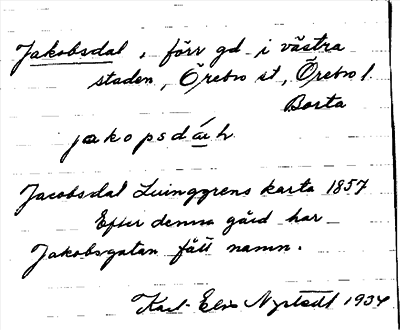 Jakobsdal, förr gd i västra
staden, Örebro st, Örebro l.
Borta
jakopsdáh
Jacobsdal Luinggrens karta 1857
Efter denna gård har
Jakobsgatan fått namn.
Karl-Elis Nystedt 1934